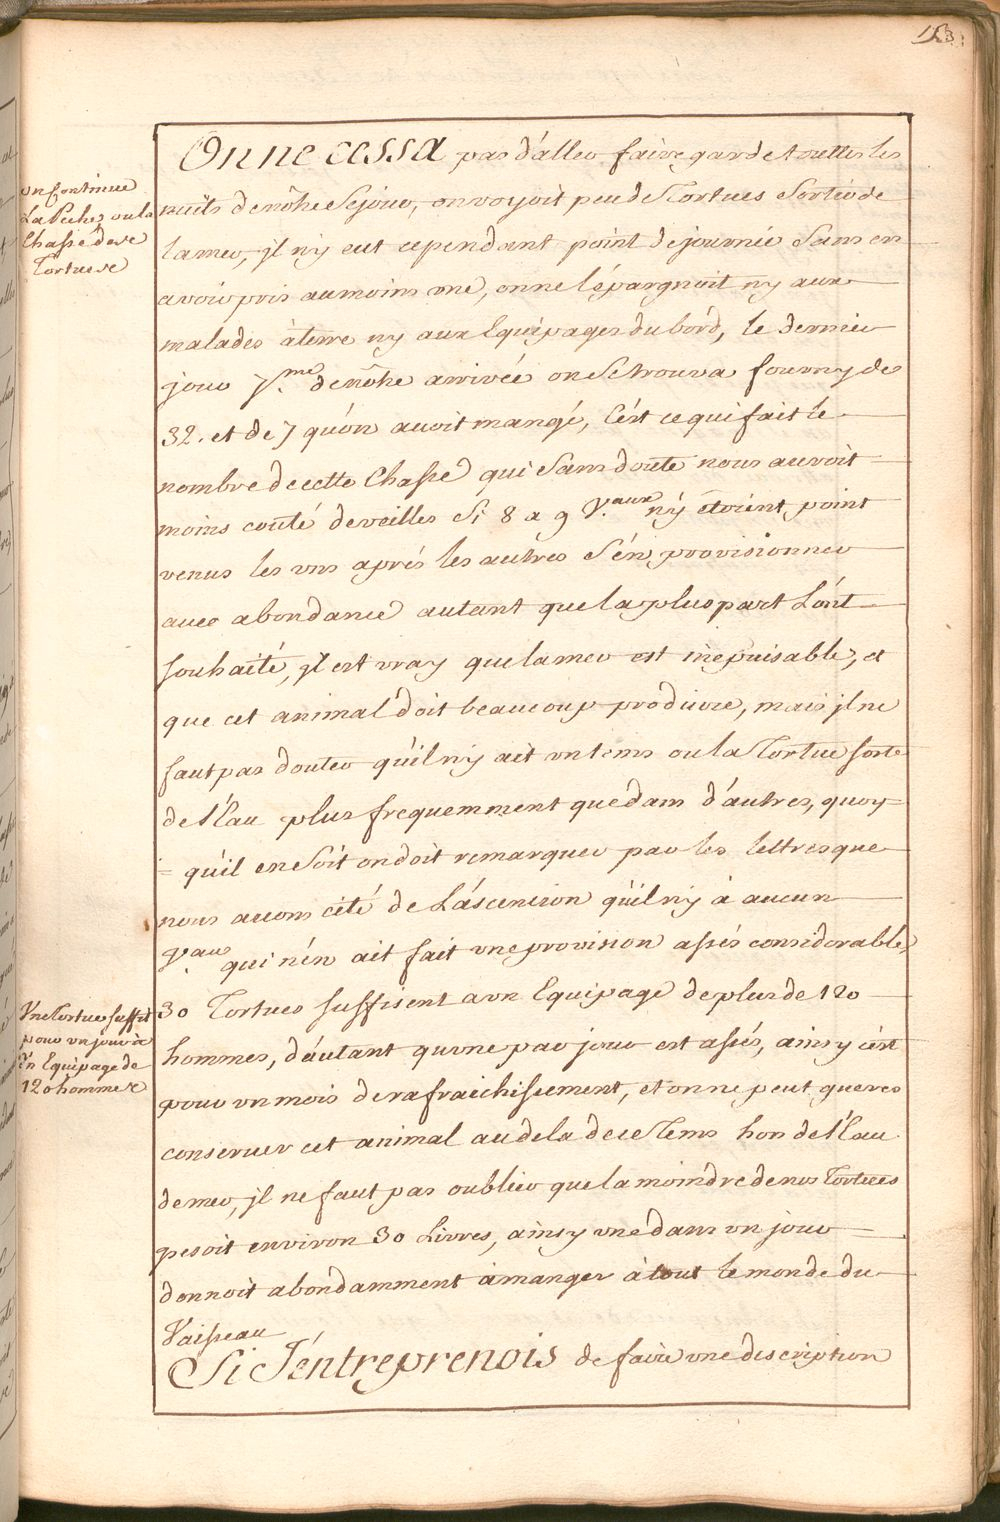 153
On ne cessa pas d'aller faire garde touttes les
nuits de nôtre Sejour, on voyoit peu de Tortues Sortir de
la mer, jl n'y eut cependant point de journée Sans en
avoir pris au moins une, on ne l'épargnoit ny aux
malades à terre ny aux Equipages du bord, le dernier
jour 7.me de nôtre arrivée on Se trouva fourny de
32. et de 7 qu'on avoit mangé, C'est ce qui fait le
nombre de cette Chasse qui Sans doute nous auroit
moins couté de veilles Si 8 a 9 V.aux n'y étoient point
venus les uns aprés les autres S'en provisionner
avec abondance autant que la plus part L'ont
souhaité, jl est vray que la mer est inepuisable, et
que cet animal doit beaucoup produire, mais jl ne
faut pas douter qu'il n'y ait un tems ou la Tortue sorte
de l'Eau plus frequemment que dans d'autres, quoy=
=qu'il en Soit on doit remarquer par les lettres que
nous avons cité de L'ascension qu'il n'y à aucun
V.au qui n'en ait fait une provision assés considerable,
30 Tortues suffisent a un Equipage de plus de 120
hommes, d'autant qu'une par jour est assés, ainsy c'est
pour un mois de rafraichissement, et on ne peut gueres
conserver cet animal au dela de ce Tems hors de l'Eau
de mer, jl ne faut pas oublier que la moindre de nos Tortues
pesoit environ 30 Livres, ainsy une dans un jour
donnoit abondamment à manger à tout le monde du
Vaisseau
Si J'entreprenois de faire une description
on Continue
La Peche, ou la
Chasse de
Tortues
Une Tortue suffit
pour un jour à
Un Equipage de
120 hommes